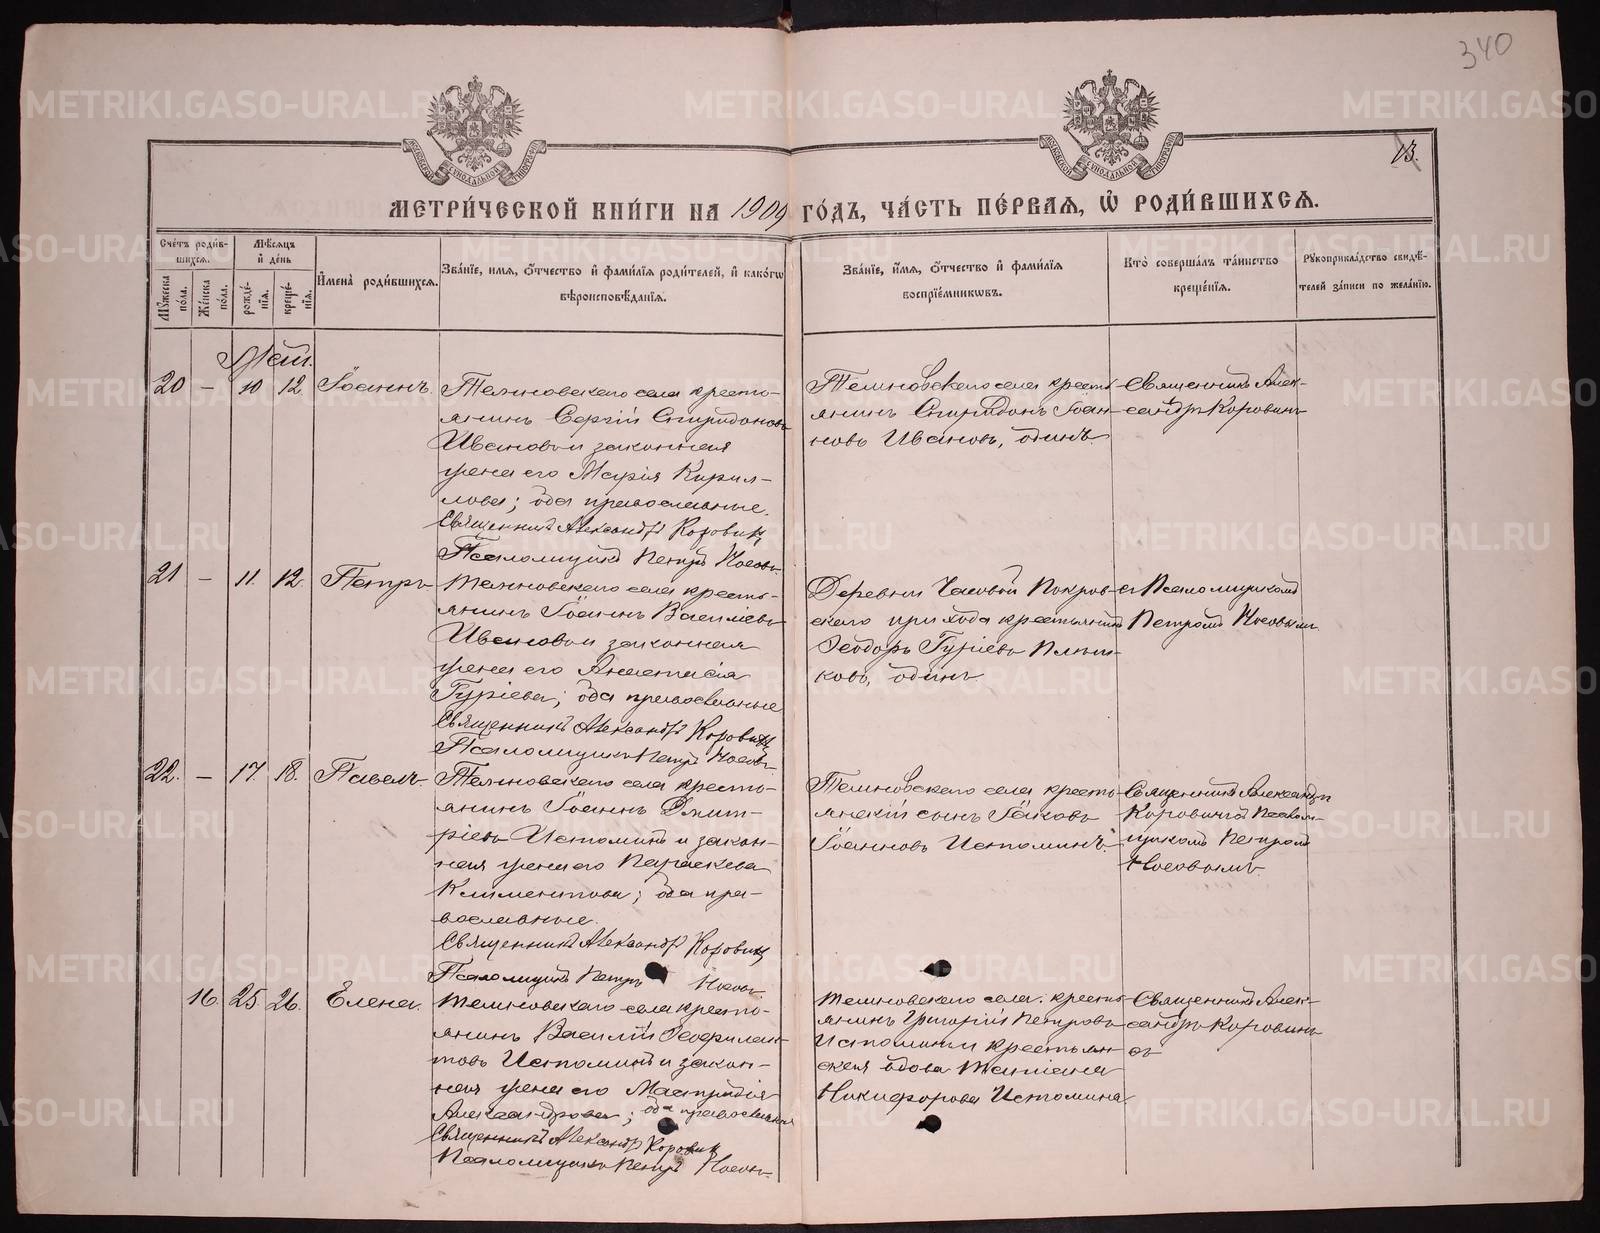 340
13.
МЕТРИ́ЧЕСКОЙ КНИ́ГИ НА 1909 ГО́ДЪ, ЧА́СТЬ ПЕ́РВАЯ, Ѡ҆ РОДИ́ВШИХСЯ.
Сче́тъ роди́в-
шихся.
Мꙋ́жеска по́ла.
Же́нска по́ла.
Мѣ́сяцъ
и҆ де́нь
рожде́-
нїя.
креще́-
нїя.
И҆мена̀ роди́вшихся.
Зва́нїе, и҆мя, ѻ҆́тчество и҆ фами́лїя роди́телей, и҆ како́гѡ
вѣроисповѣ́данїя.
Зва́нїе, и҆́мя, ѻ҆́тчество и҆ фами́лїя
воспрїе́мникѡвъ.
Кто̀ соверша́лъ та́инство
креще́нїя.
Рꙋкоприкла́дство свидѣ́-
телей за́писи по жела́нїю.
Май.
20 — 10 12 Іоаннъ.
Темновского села кресть-
янинъ Сергій Спиридоновъ
Ивановъ и законная
жена его Марія Кирил-
лова; оба православные.
Священникъ Александръ Коровинъ
Псаломщикъ Петръ Носовъ.
Темновского села кресть-
янинъ Спиридонъ Іоан-
новъ Ивановъ, одинъ.
Священникъ Алек-
сандръ Коровинъ
21 — 11. 12. Петръ
Темновского села кресть-
янинъ Іоаннъ Васильевъ
Ивановъ и законная
жена его Анастасія
Гуріева; оба православные
Священникъ Александръ Коровинъ
Псаломщикъ Петръ Носовъ
Деревни Часовой Покров-
скаго прихода крестьянинъ
Ѳеодоръ Гуріевъ
ковъ, одинъ
съ Псаломщикомъ
Петромъ Носовымъ.
22. — 17. 18. Павелъ.
Темновского села кресть-
янинъ Іоаннъ Дмит-
ріевъ Истоминъ и закон-
ная жена его Параскева
Климентова; оба пра-
вославные.
Священникъ Александръ Коровинъ
Псаломщикъ Петръ Носовъ
Темновского села кресть-
янскій сынъ Іаковъ
Іоанновъ Истоминъ.
Священникъ Александръ
Коровинъ съ Псалом-
щикомъ Петромъ
Носовымъ
16. 25 26. Елена.
Темновского села кресть-
янинъ Василій Ѳеофилак-
товъ Истоминъ и закон-
ная жена его Мастридія
Александрова; оба православные
Священникъ Александръ Коровинъ
Псаломщикъ Петръ Носовъ.
Темновского села кресть-
янинъ Григорій Петровъ
Истоминъ и крестьян-
ская вдова Татіана
Никифорова Истомина.
Священникъ Алек-
сандръ Коровинъ
съ
METRIKI.GASO-URAL.RU